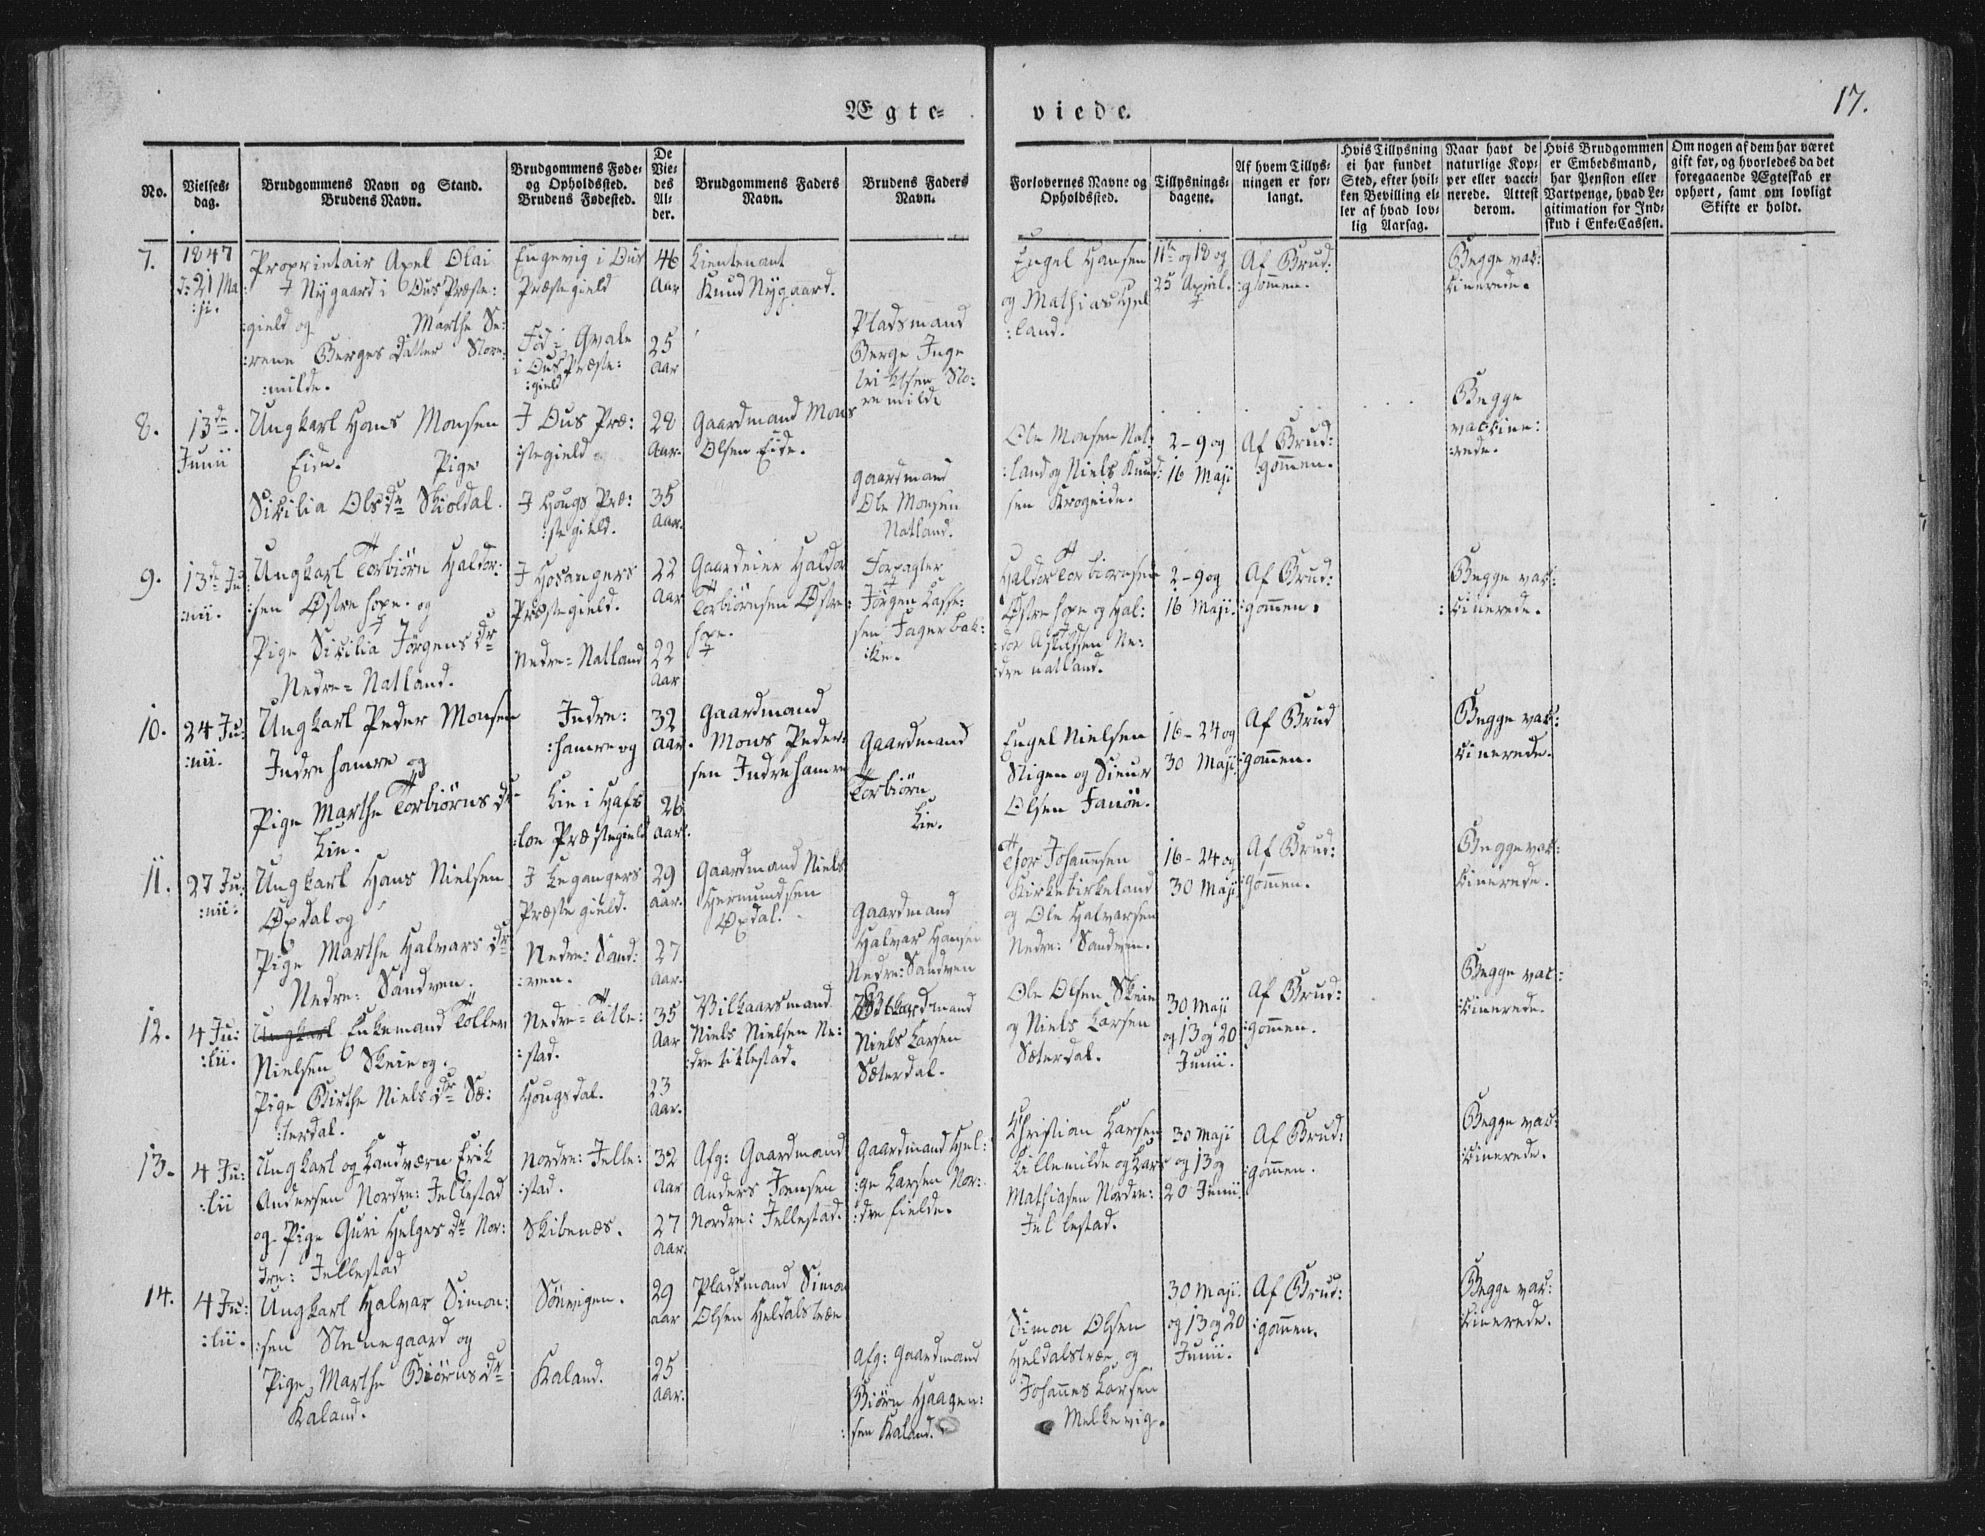 Ægte=
viede.
17.
No.
Vielses-
dag.
Brudgommens Navn og Stand.
Brudens Navn.
Brudgommens Føde-
og Opholdssted.
Brudens Fødested.
De
Vie-
des
Al-
der.
Brudgommens Faders
Navn.
Brudens Faders
Navn.
Forlovernes Navne og
Opholdssted.
Tillysnings-
dagene.
Af hvem Tillys-
ningen er for-
langt.
Hvis Tillysning
ei har fundet
Sted, efter hvil-
ken Bevilling el-
ler af hvad lov-
lig Aarsag.
Naar havt de
naturlige Kop-
per eller vacci-
nerede. Attest
derom.
Hvis Brudgommen
er Embedsmand,
har Pension eller
Vartpenge, hvad Le-
gitimation for Ind-
skud i Enke-Cassen.
Om nogen af dem har været
gift før, og hvorledes da det
foregaaende Ægteskab er
ophørt, samt om lovligt
Skifte er holdt.
7.
1847
d: 21 Ma
:ji.
Proprietair Axel Olai
I Nygaard i Ous Præste:
:gield og Marthe Se:
:rene Berges Datter Store:
:milde.
Engevig i Ous
Præstegield
Fød i Gvale
i Ous Præste:
:gield
46
Aar
25
Aar
Lieutenant
Knud Nygaard.
Pladsmand
Berge Inge
Sto:
remilde
Engel Hansen
og Mathias Hel
:land.
11te og 18 og
25 April.
Af Brud:
:gommen.
Begge vac:
cinerede.
8.
13de
Junii
Ungkarl Hans Monsen
Eide. Pige
Sicilia Olsdr Skioldal.
I Ous Præ:
:stegield
I Hougs Præ:
:stegield.
28
Aar.
35
Aar.
Gaardmand Mons
Olsen Eide.
Gaardmand
Ole Monsen
Natland.
Ole Monsen Nat:
:land og Niels Knud:
sen Krogeide.
2-9 og
16 Maji
Af Brud:
:gommen.
Begge
vaccine:
:rede.
9.
13de Ju
:nii.
Ungkarl Torbiørn Haldor:
:sen Østrehope. og
Pige Sicilia Jørgens dr
Nedre= Natland.
I Hosangers
Præstegield.
Nedre= Natland
22
Aar
22
Aar
Gaardeier Haldor
Torbiørnsen Østre:
hope.
Forpagter
Jørgen Lasse:
sen Fagerbak:
:ke.
Haldor Torbiørnsen
Østre hope og Hal:
:dor Askildsen Ne:
:dre natland.
2-9 og
16 Maji.
Af Brud:
:gommen.
Begge vac:
:cinerede.
10.
24 Ju:
:nii.
Ungkarl Peder Monsen
Indrehamre og
Pige Marthe Torbiørns dr
Lie.
Indre:
:hamre og
Lie i Hafs
:loe Præstegield
32
Aar.
26
Aar.
Gaardmand
Mons Peder:
sen Indrehamre
Gaardmand
Torbiørn
Lie.
Engel Nielsen
Stigen og Siur
Olsen Fanøe.
16-24 og
30 Maji
Af Brud
:gommen.
Begge vac:
cinerede.
11.
27 Ju:
:nii.
Ungkarl Hans Nielsen
Opdal og
Pige Marthe Halvars dr
Nedre: Sandven.
I Legangers
Præstegield.
Nedre: Sand:
:ven.
29
Aar.
27
Aar.
Gaardmand Niels
Hermundsen
Opdal.
Gaardmand
Halvar Hansen
Nedre: Sandven
Thor Johannesen
Kirkebirkeland
og Ole Halvarsen
Nedre: Sandven.
16-24 og
30 Maji
Af Brud:
:gommen.
Begge vac:
cinerede.
12.
4 Ju:
:lii.
Ungkarl Enkemand Tollev
Nielsen Skeie og
Pige Birthe Niels dr Sæ:
:terdal.
Nedre= Title:
:stad.
Hougsdal.
35
Aar
23
Aar.
Vilkaarsmand
Niels Nielsen Ne:
:dre titlestad.
Gaardmand
Niels Larsen
Sæterdal.
Ole Olsen Skeie
og Niels Larsen
Sæterdal.
30 Maji
og 13 og 20
Junii.
Af Brud:
:gommen.
Begge vac:
:cinerede.
13.
4 Ju:
:lii
Ungkarl og Landværn Erik
Andersen Nordre: Jellestad
og Pige Guri Helges dr Nor:
dre: Jellestad
Nordre: Jelle:
:stad.
Skibenæs.
32
Aar
27
Aar.
Afg: Gaardmand
Anders Joensen
Nordre: Jellestad.
Gaardmand Hel:
:ge Larsen Nor:
:dre fielde.
Christian Larsen
Lillemilde og Lars
Mathiasen Nordre:
Jellestad.
30 Maji
og 13 og
20 Junii
Af Brud:
:gommen.
Begge vac:
:cinerede.
14.
4 Ju:
:lii.
Ungkarl Halvar Simon:
:sen Steenegaard og
Pige Marthe Biørns dr
Kaland.
Sønvigen.
Kaland.
29
Aar
25
Aar.
Pladsmand Simon
Olsen Heldalstræe
Afg: Gaardmand
Biørn Haagen:
:sen Kaland.
Simon Olsen
Heldalstræe og
Johannes Larsen
Melkevig.
30 Maji.
og 13 og 20
Junii.
Af Brud:
:gommen.
Begge vac:
cinerede.